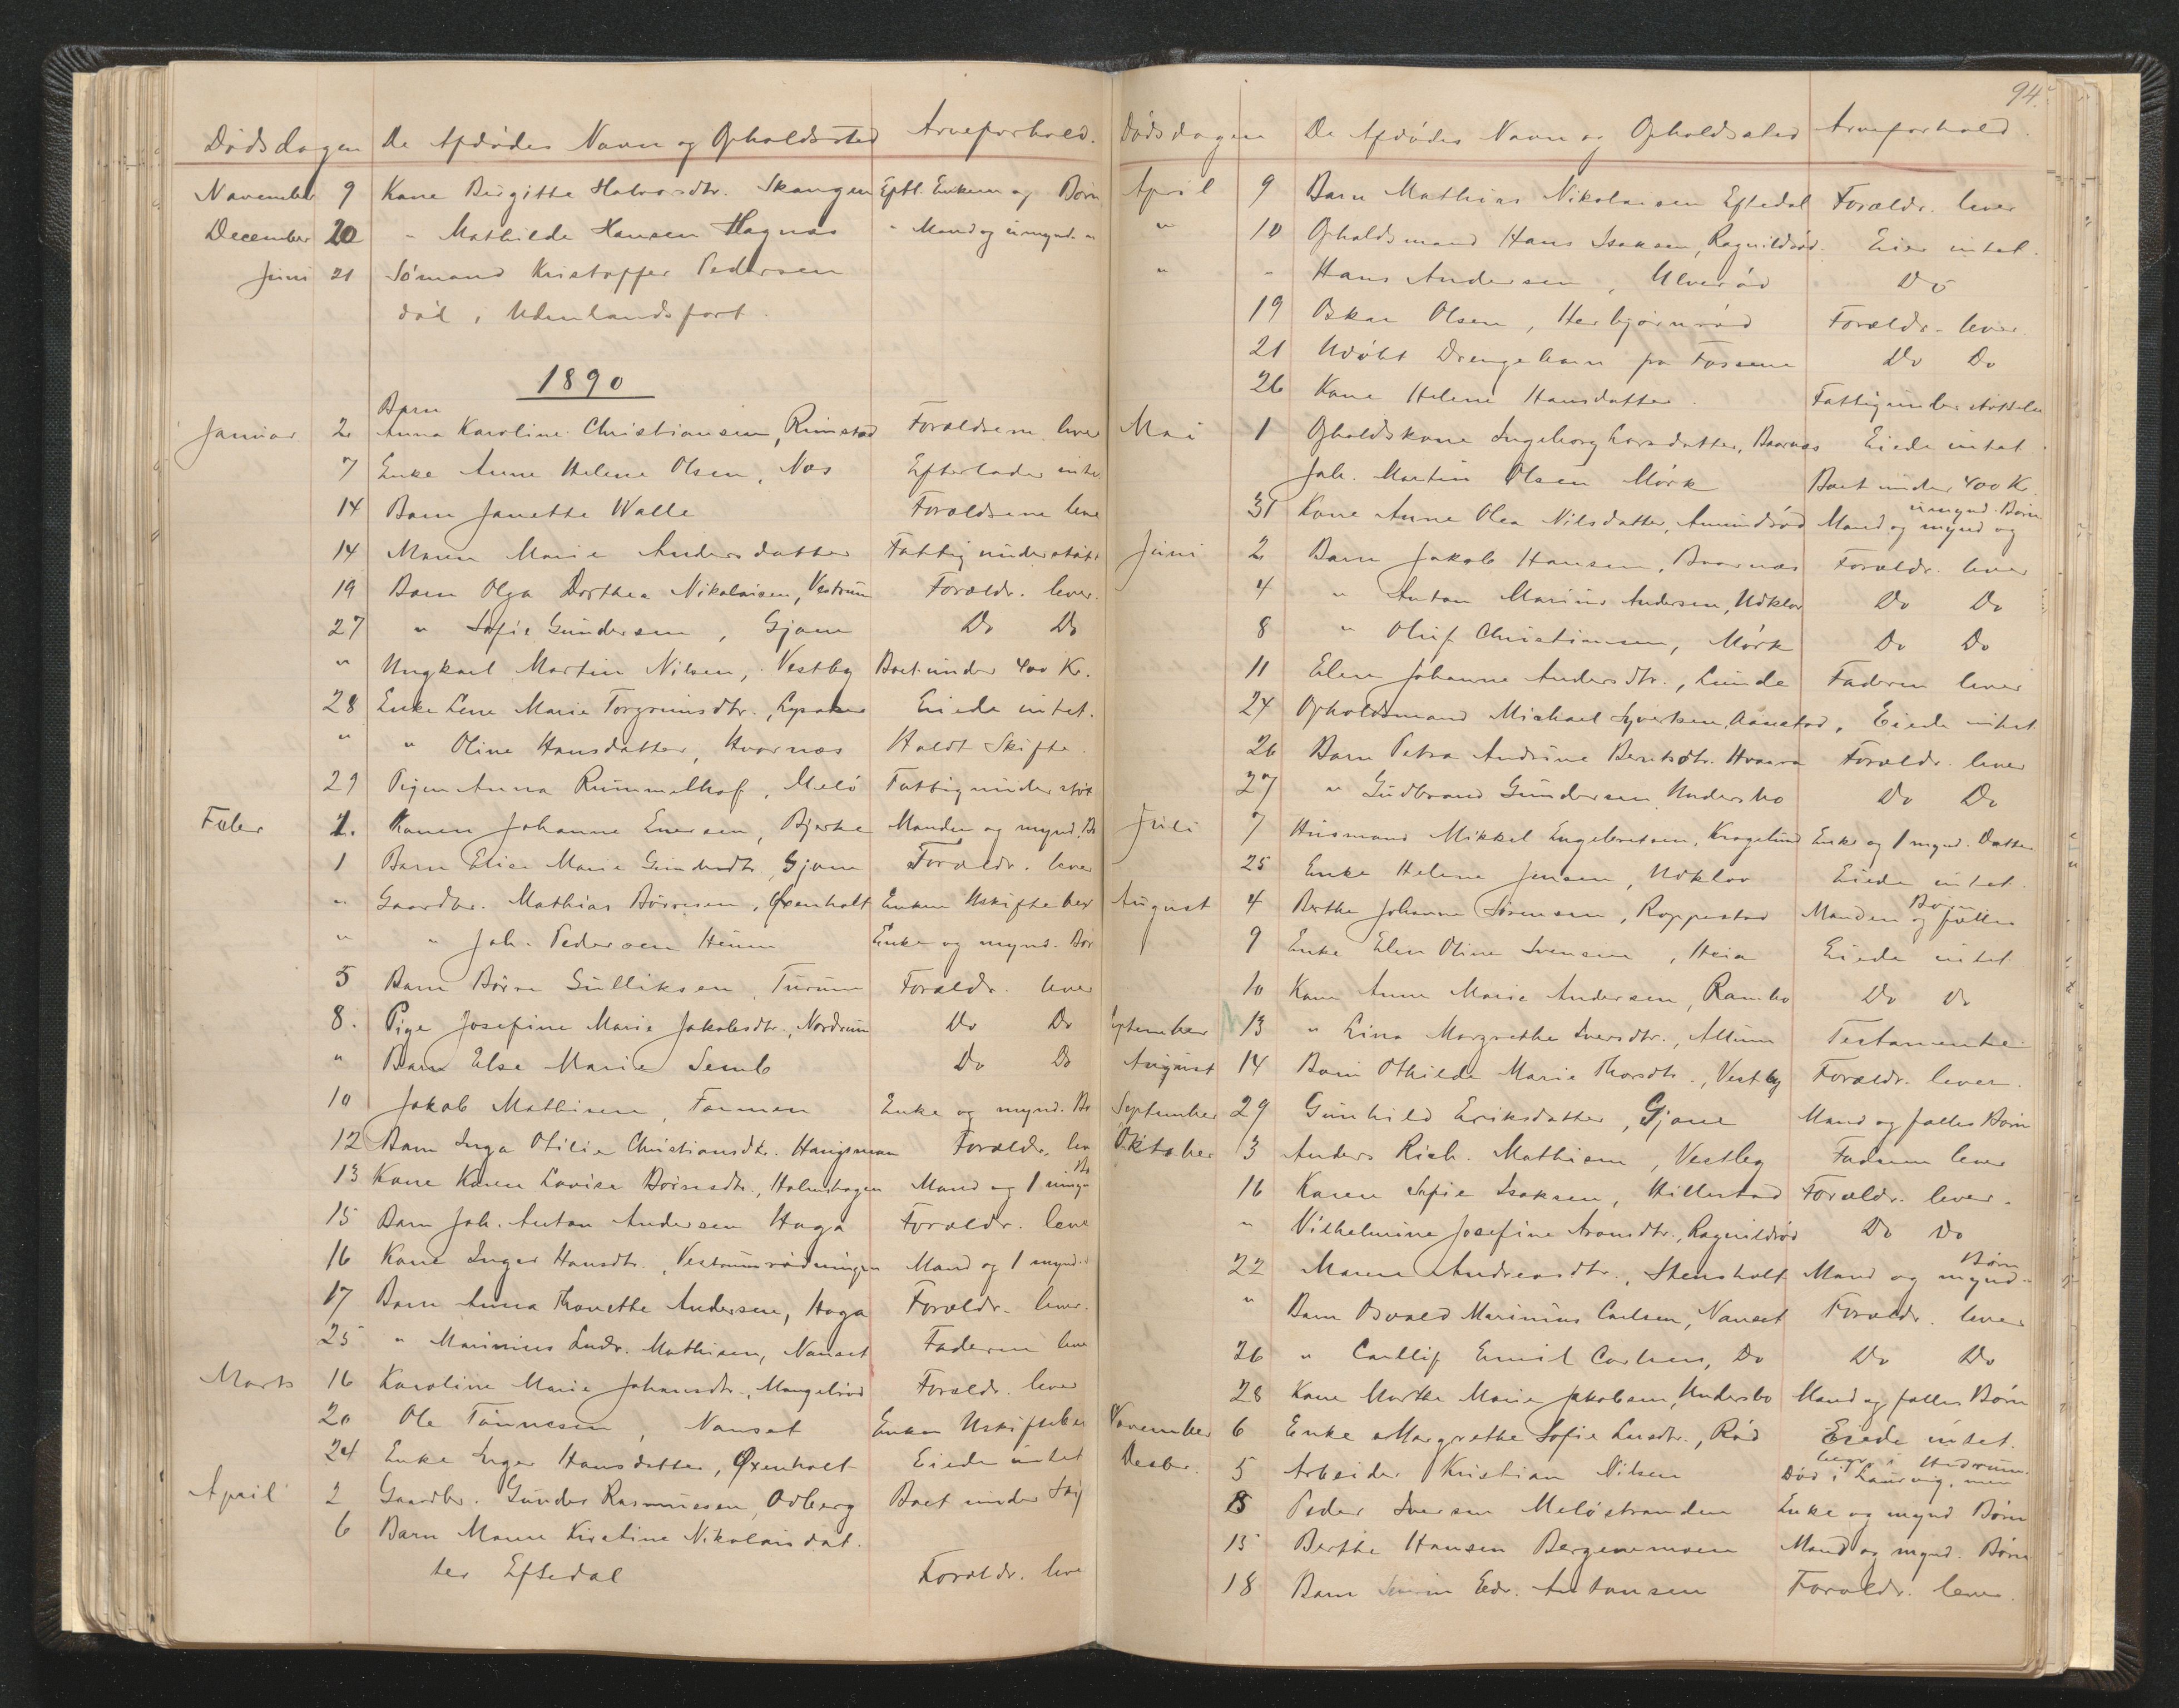 Dødsdagen De Afdødes Navn og Opholdssted Arveforhold.
November 9 Kone Birgitte Halvorsdtr. Skaugen Eftl. Enkem. og Børn
December 20 " Mathilde Hansen Hagnæs " Mand og umynd. "
Juni 21 Sømand Kristoffer Pedersen
død i Udenlandsfart.
1890
Barn
Januar 2 Anna Karoline Christiansen, Rimstad Forældrene lever
7 Enke Anne Helene Olsen, Næs Efterlader intet
14 Barn Janette Walle Forældrene leve
14 Maren Marie Andersdatter Fattigunderstøtt
19 Barn Olga Dorthea Nikolaisen, Vestrum Forældr. lever.
27 " Sofie Gundersen, Gjone Do Do
" Ungkarl Martin Nilsen, Vestby Boet under 400 Kr.
28 Enke Lene Marie Torgrimsdtr., Lysaker Eiede intet.
" " Oline Hansdatter, Hvarnes Holdt Skifte.
29 Pigen Anna Rummelhof, Melø Fattigunderstøt
Feber 1. Konen Johanne Enersen, Bjerke Manden og mynd. Bø
1 Barn Elise Marie Gundersdtr, Gjone Forældr. lever
" Gaardbr. Mathias Børresen, Øxenholt Enken Uskifte bev
" " Joh. Pedersen Heum Enke og mynd. Bør
5 Barn Børre Gulliksen, Turum Forældr. lever
8. Pige Josefine Marie Jakobsdtr., Nordrum Do Do
" Barn Else Marie Semb Do Do
10 Jakob Mathisen, Farmen Enke og mynd. Bø
12 Barn Inga Otilie Christiansdtr. Haugsman Forældr. lev
13 Kone Karen Lovise Børresdtr., Holmskogen Mand og 1 umyn Bø
15 Barn Joh. Anton Andersen Haga Forældr. leve
16 Kone Inger Hansdtr., Vestrumrødningen Mand og 1 mynd.
17 Barn Anna Thonette Andersen, Haga Forældr. lever.
25 " Marinius Ludv. Mathisen, Nanset Faderen leve
Marts 16 Karoline Marie Johansdtr., Mangelrød Forældr. lever
20 Ole Tønnesen, Nanset Enken Uskiftebev
24 Enke Inger Hansdatter, Øxenholt Eiede intet
April 2 Gaardbr. Gunder Rasmussen, Odberg Boet under Skif
6 Barn Maren Kirstine Nikolaisdat.
ter Eftedal Forældr. leve
94.
Dødsdagen De Afdødes Navn og Opholdssted Arveforhold.
April 9 Barn Mathias Nikolaisen Eftedal Forældr. lever
" 10 Opholdsmand Hans Isaksen, Ragnildrød Eier intet.
" " Hans Andersen, Ulverød Do
19 Oskar Olsen, Herbjørnrød Forældr. lever.
21 Udøbt Drengebarn fra Fossene Do Do
26 Kone Helene Hansdatter. Fattigunderstøttelse
Mai 1 Opholdskone Ingeborg Larsdatter, Baarnæs Eiede intet.
Joh. Martin Olsen Mørk Boet under 400 Kr.
31 Kone Anne Olea Nilsdatter, Amundrød Mand og mynd og umynd. Børn
Juni 2 Barn Jakob Hansen, Baarnæs Forældr. lever
4 " Anton Marius Andersen, Udklev Do Do
8 " Oluf Christiansen, Mørk Do Do
11 Elen Johanne Andersdtr., Lunde Faderen lever
24 Opholdsmand Michael Syvertsen, Aanestad, Eiede intet
26 Barn Petra Andrine Berntsdtr. Hvaara Forældr. lever
27 " Gudbrand Gundersen Undersbo Do Do
Juli 7 Husmand Mikkel Engebretsen, Kragelund Enke og 1 mynd. Datter
25 Enke Helene Jensen, Udklev Eiede intet.
August 4 Berthe Johanne Sørensen, Roppestad Manden og fælles Børn
9 Enke Elen Oline Svensen, Heia Eiede intet
10 Kone Anne Marie Andersen, Rambo Do Do
September 13 " Lina Margrethe Iversdtr., Allum Testamente
August 14 Barn Othilde Marie Thorsdtr., Vestby Forældr. lever.
September 29 Gunhild Eriksdatter, Gjone Mand og fælles Børn
Oktober 3 Anders Rich. Mathisen, Vestby Faderen lever
16 Karen Sofie Isaksen, Hillestad Forældr. lever.
" Vilhelmine Josefine Aronsdtr., Ragnildrød Do Do
22 Maren Andreasdtr., Stensholt Mand og mynd. Børn
" Barn Osvald Marinius Carlsen, Nanset Forældr. lever
26 " Carllif Emil Carlsen, Do Do Do
28 Kone Marthe Marie Jakobsen, Undersbo Mand og fælles Børn
November 6 Enke Margrethe Sofie Larsdtr., Rød Eiede intet.
Decbr. 5 Arbeider Kristian Nilsen Død i Laurvig, men begr. i Hedrum.
8 Peder Iversen Meløstranden Enke og mynd Børn
15 Berthe Hansen Bergenemoen Mand og mynd. Børn
18 Barn Edv. Antonsen Forældr. lever.